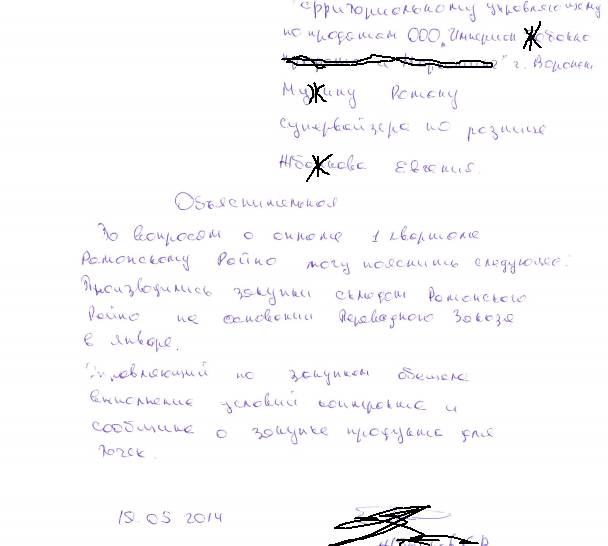 Территориальному управляющему
по продажам ООО „Империал
г. Воронеж
Роману
Супервайзера по рознице
Евгения.
Объяснительная
По вопросам о 1 квартала
Рамонскому Райпо могу пояснить следующее:
Производились закупки складом Рамонского
Райпо на основании Заказа
в январе.
Управляющий по закупкам обещала
выполнение условий контракта и
сообщила о закупке продукта для
точек.
19 05 2014